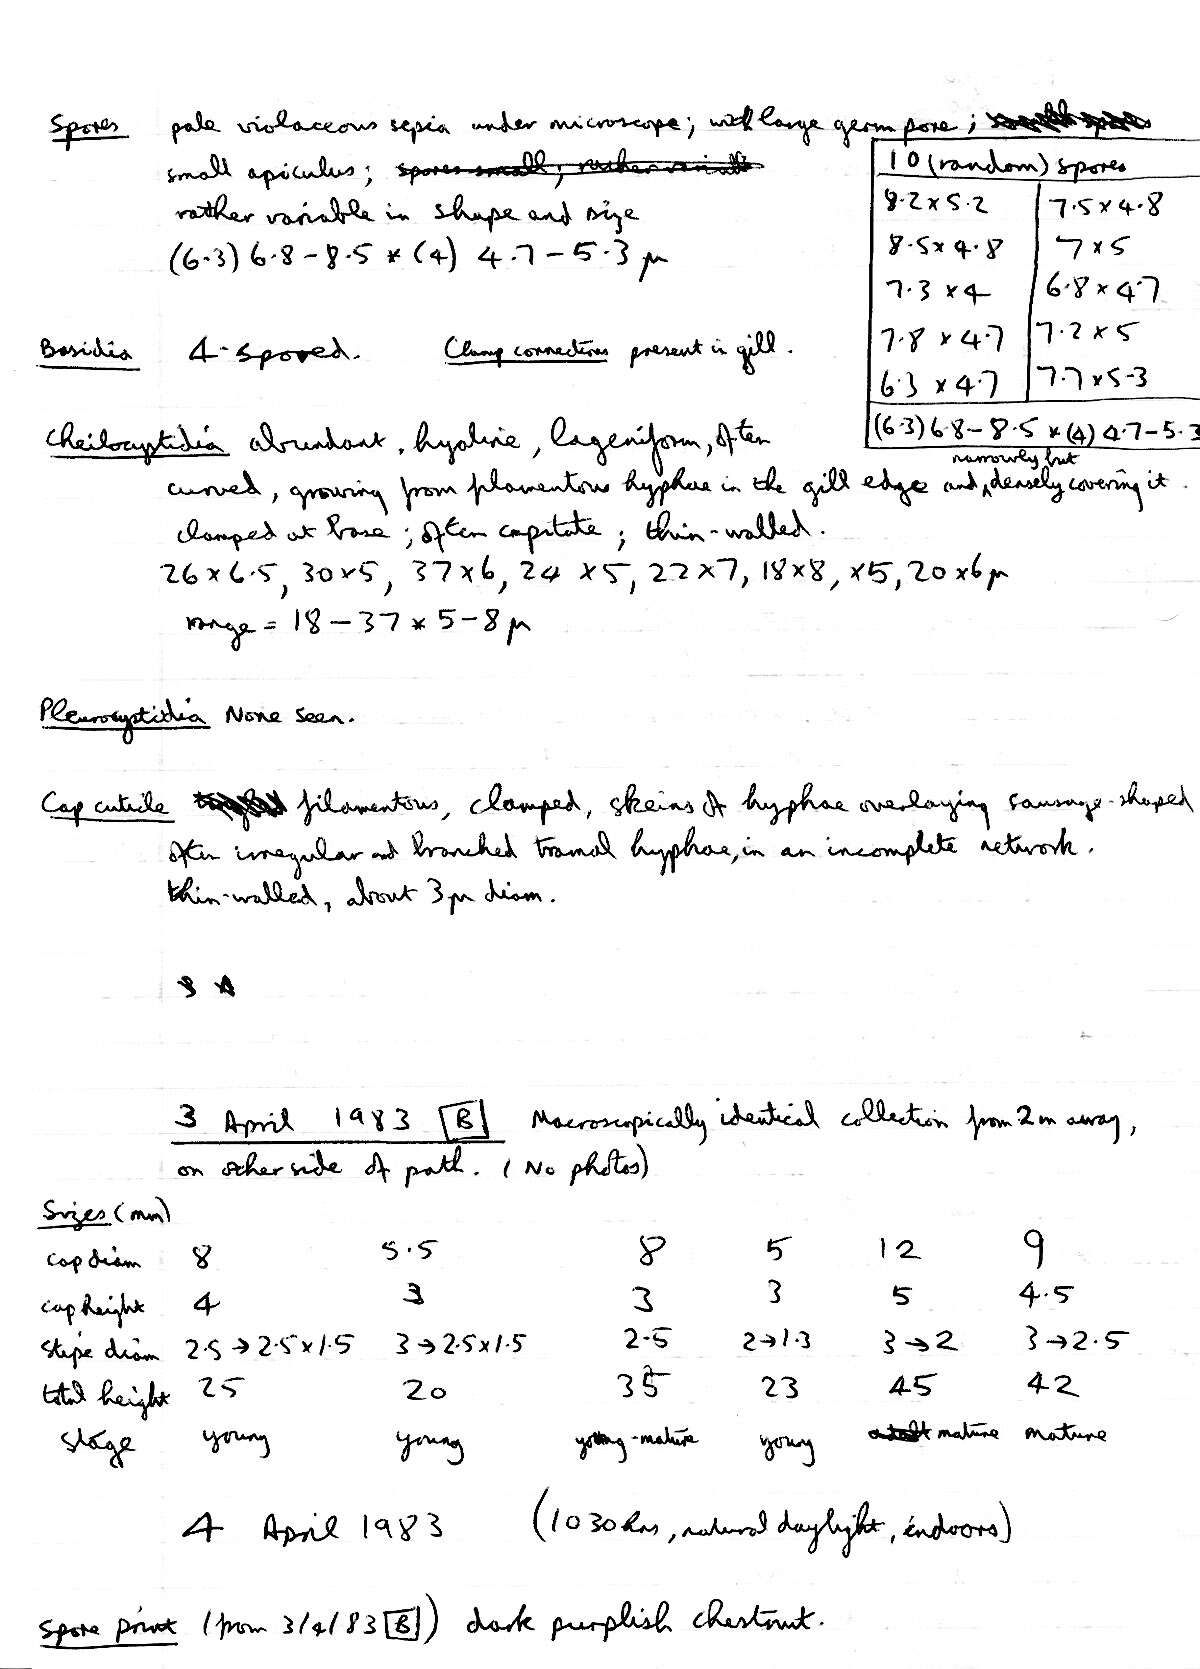 Spores pale violaceous sepia under microscope; with large germ pore;
small apiculus; spores small; rather variable
rather variable in shape and size
(6.3) 6.8 – 8.5 × (4) 4.7 – 5.3 μ
10 (random) spores
8.2 × 5.2 7.5 × 4.8
8.5 × 4.8 7 × 5
7.3 × 4 6.8 × 4.7
7.8 × 4.7 7.2 × 5
6.3 × 4.7 7.7 × 5.3
(6.3) 6.8 – 8.5 × (4) 4.7 – 5.3
Basidia 4-spored. Clamp connections present in gill.
Cheilocystidia abundant, hyaline, lageniform, often
curved, growing from filamentous hyphae in the gill edge and narrowly but densely covering it.
clamped at base; often capitate; thin-walled.
26 × 6.5, 30 × 5, 37 × 6, 24 × 5, 22 × 7, 18 × 8, × 5, 20 × 6 μ
range = 18 – 37 × 5 – 8 μ
Pleurocystidia None seen.
Cap cuticle filamentous, clamped, skeins of hyphae overlaying sausage-shaped
often irregular and branched tramal hyphae, in an incomplete network.
thin-walled, about 3 μ diam.
3 April 1983 [B] Macroscopically identical collection from 2m away,
on other side of path. (No photos)
Sizes (mm)
cap diam 8 5.5 8 5 12 9
cap height 4 3 3 3 5 4.5
stipe diam 2.5 → 2.5 × 1.5 3 → 2.5 × 1.5 2.5 2 → 1.3 3 → 2 3 → 2.5
total height 25 20 35 23 45 42
stage young young young-mature young mature mature
4 April 1983 (1030 hrs, natural daylight, indoors)
Spore print (from 3/4/83 [B]) dark purplish chestnut.